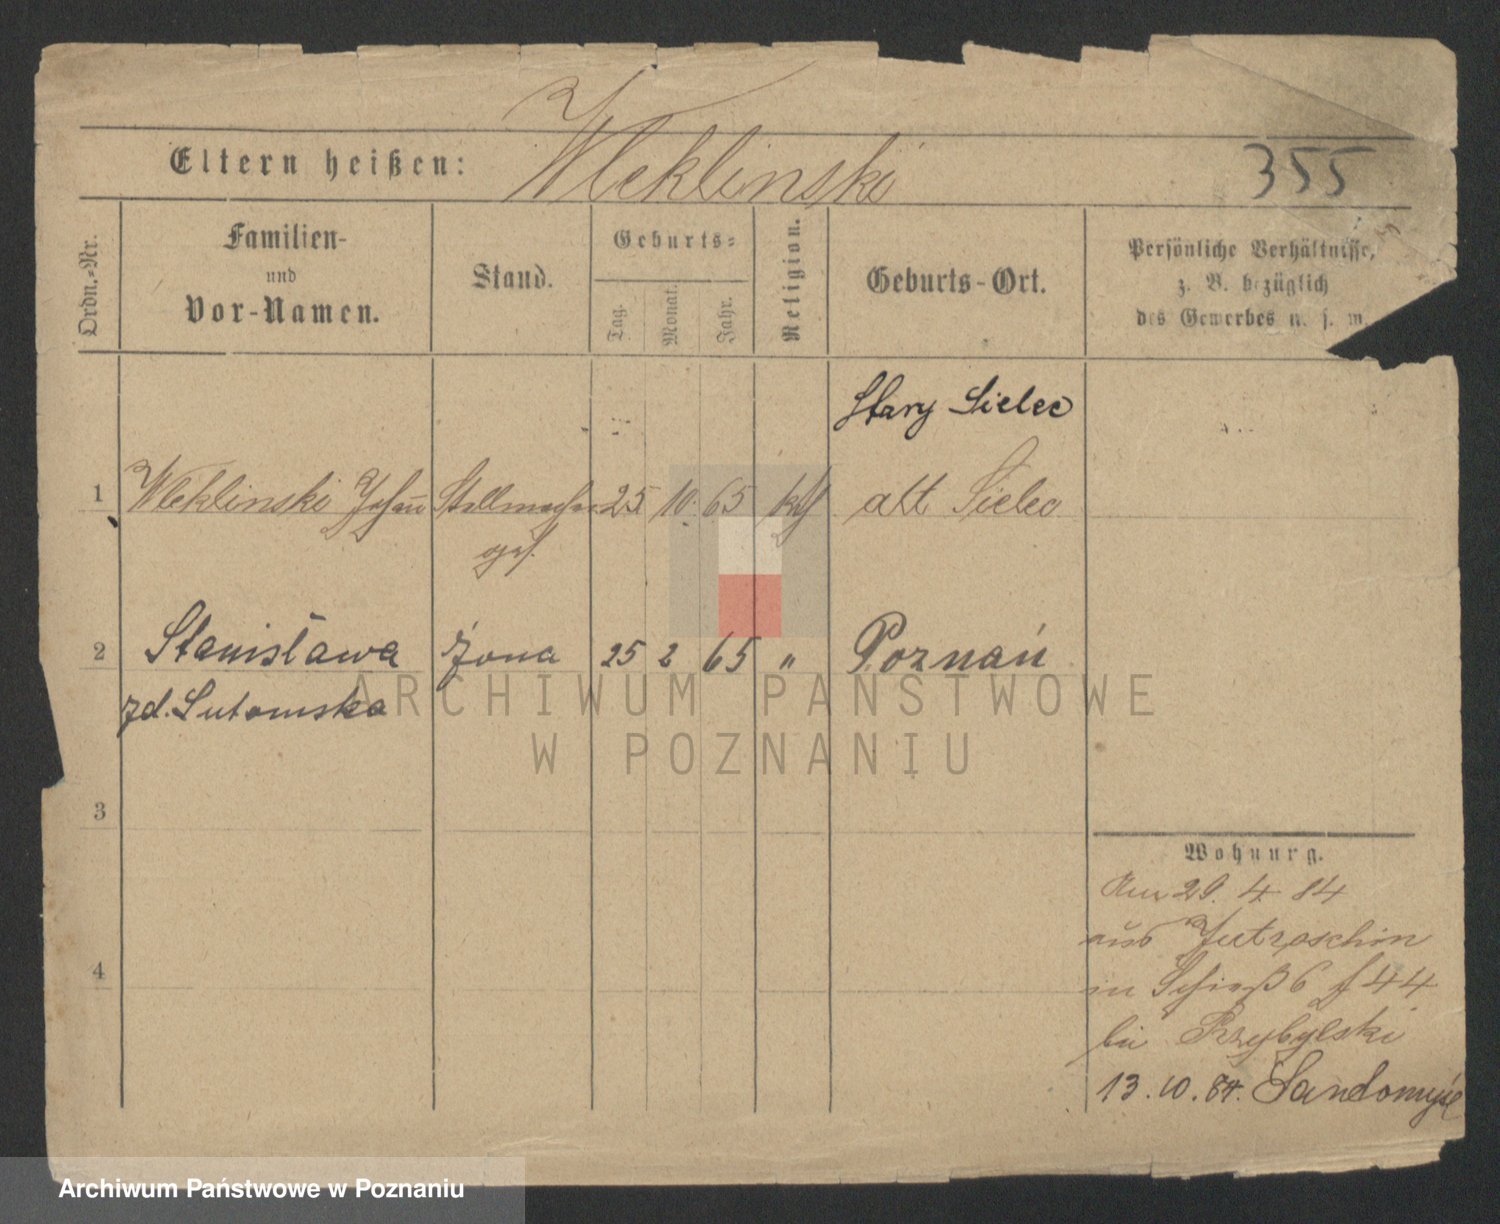 Wleklinski
Eltern heißen:
355
Ordn.-Nr.
Familien-
und
Vor-Namen.
Stand.
Geburts-
Tag.
Monat.
Jahr.
Religion.
Geburts-Ort.
Persönliche Verhältnisse,
z. B. bezüglich
des Gewerbes u. s. w.
Stary Sielec
1 Wleklinski Johann Stellmacher 25. 10. 65 kth alt Sielec
ges.
2 Stanisława żona 25 2 65 " Poznań
zd. Lutomska
3
4
Wohnung.
29. 4. 84
aus Jutroschin
in Schieß 6 f 44
bei Przybylski
13. 10. 84. Sandomyśl
ARCHIWUM PAŃSTWOWE
W POZNANIU
Archiwum Państwowe w Poznaniu